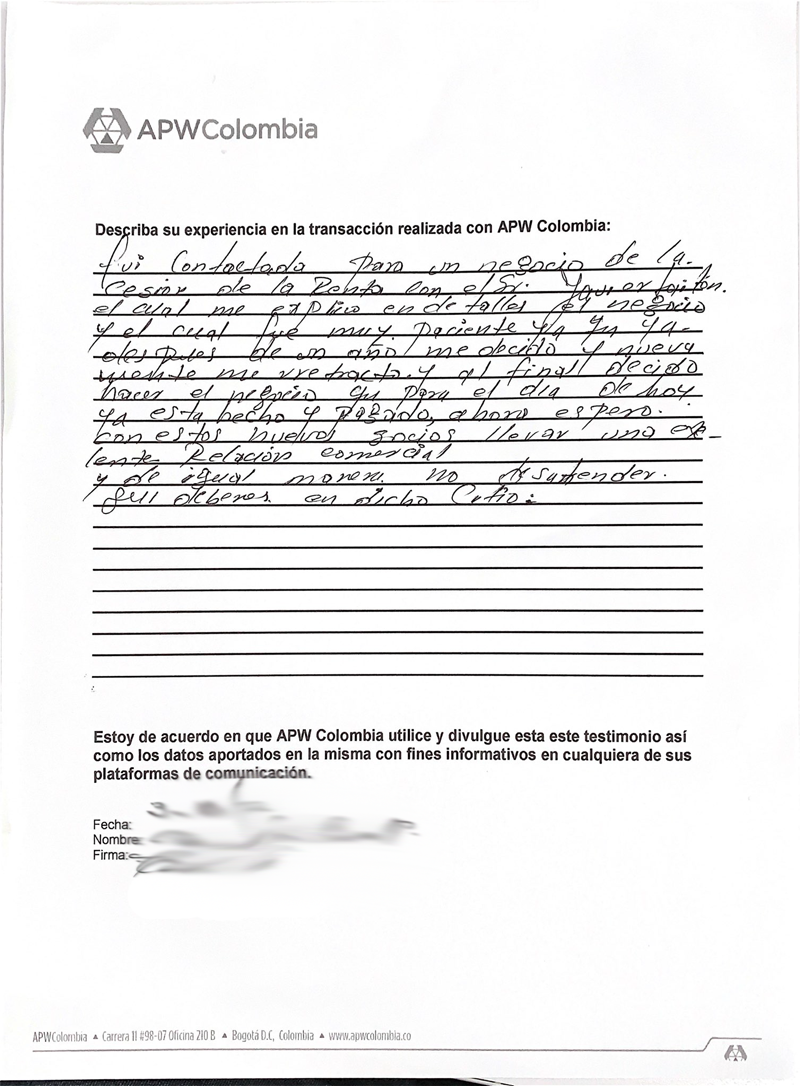 APWColombia
Describa su experiencia en la transacción realizada con APW Colombia:
fui Contactada para un negocio de la
Cesion de la Renta con el Sr.
el cual me explico en detalles el negocio
y el cual fue muy paciente ya
despues de un año me decido y nueva
mente me retracto. y al final decido
hacer el negocio para el dia de hoy
ya esta hecho y pagado, ahora espero.
con estos nuevos socios llevar una
lente Relación comercial
y de igual manera no desatender.
deberes en dicho
Estoy de acuerdo en que APW Colombia utilice y divulgue esta este testimonio así
como los datos aportados en la misma con fines informativos en cualquiera de sus
plataformas de comunicación.
Fecha:
Nombre:
Firma:
APWColombia ▲ Carrera 11 #98-07 Oficina 210 B ▲ Bogotá D.C, Colombia ▲ www.apwcolombia.co